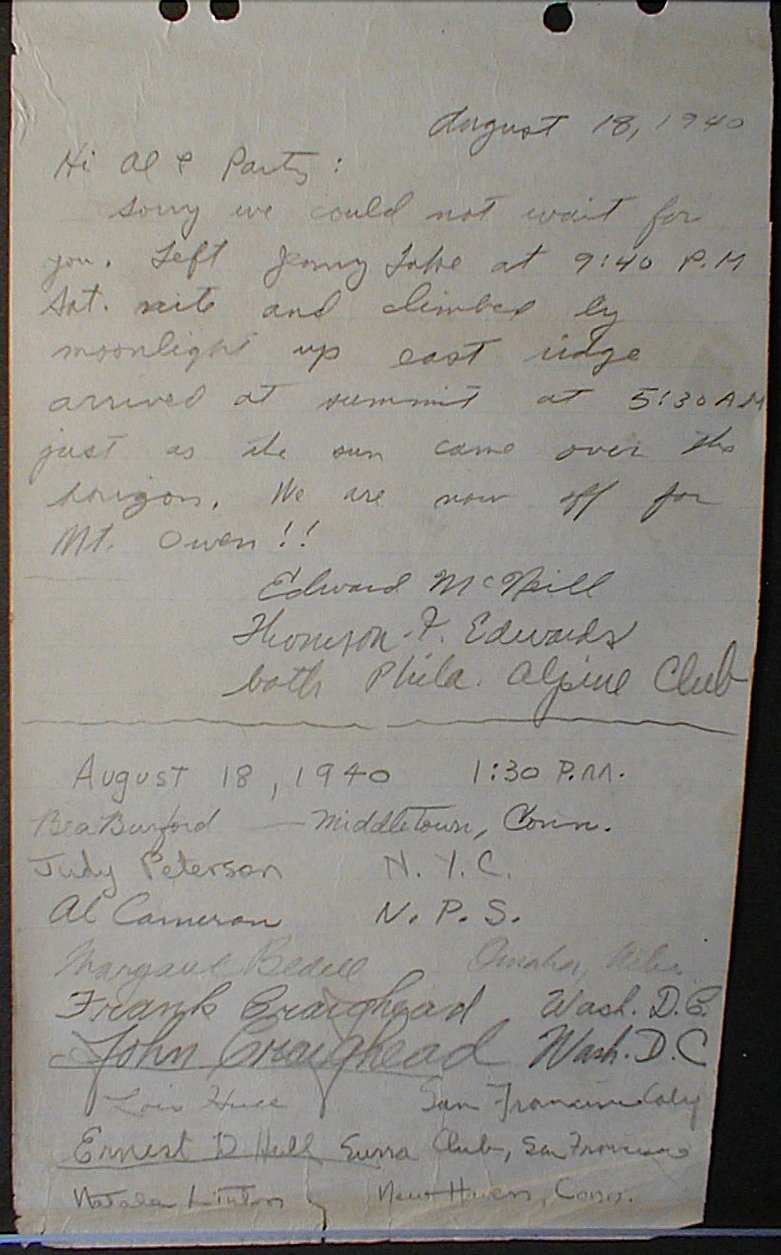 August 18, 1940
Hi Al & Party:
Sorry we could not wait for
you. Left Jenny Lake at 9:40 P.M
Sat. nite and climbed by
moonlight up east ridge
arrived at summit at 5:30 AM
just as the sun came over the
horizon. We are now off for
Mt. Owen!!
Edward McNeill
Thomson F. Edwards
both Phila. Alpine Club
August 18, 1940 1:30 P.M.
Bea Burford — Middletown, Conn.
Judy Peterson N.Y.C.
Al Cameron N.P.S.
Margaret Bedell Omaha, Nebr.
Frank Craighead Wash. D.C.
John Craighead Wash. D.C
Lois San Francisco Calif
Ernest D Hull Sierra Club, San Francisco
Natalie Linton New Haven, Conn.